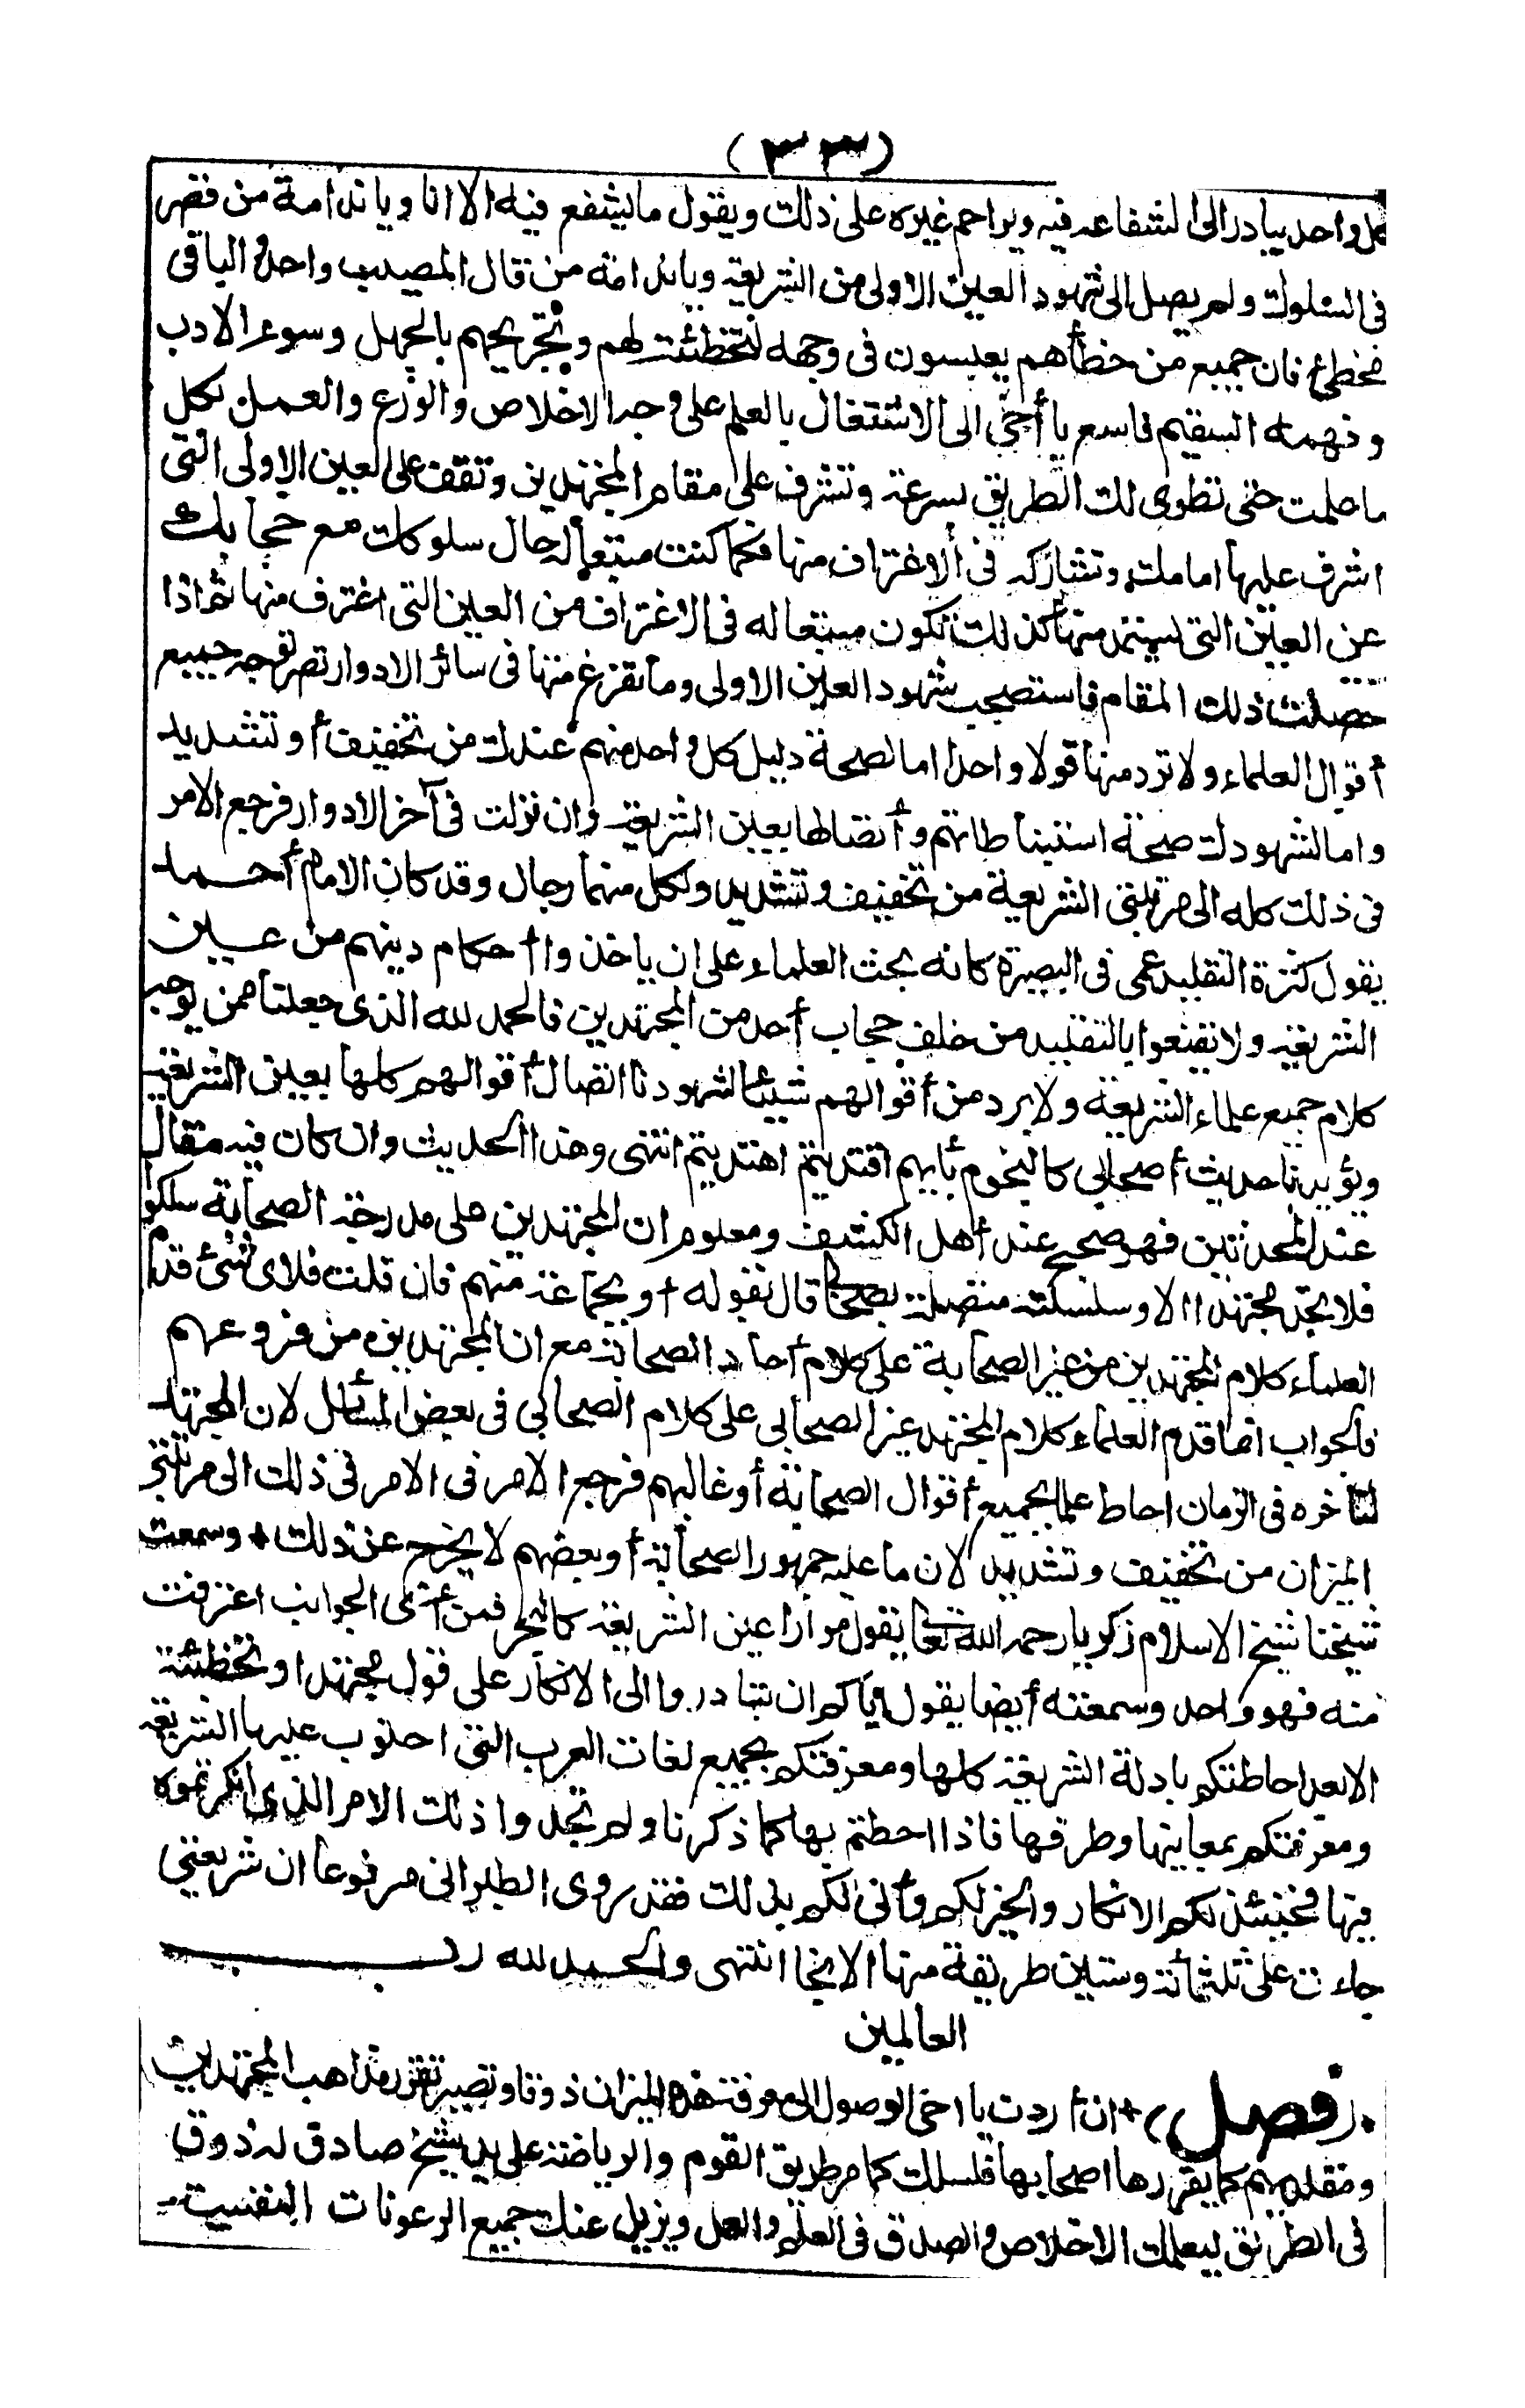 (٣٣)
كل واحد يبادر الى الشفاعه فيه ويزاحم غيره على ذلك ويقول ما يشفع فيه الا انا ويا ندامة من قصر
فى السلوك ولم يصل الى شهود العين الاولى من الشريعة ويا ندامة من قال المصيب واحد والباقى
مخطئ فان جميع من خطأهم يعبسون فى وجهه لتخطئته لهم وتجريحهم بالجهل وسوء الادب
وفهمه السقيم فاسع يا أخى الى الاشتغال بالعلم على وجه الاخلاص والورع والعمل لكل
ما علمت حتى تطوى لك الطريق بسرعة وتشرف على مقام المجتهدين وتقف على العين الاولى التى
اشرف عليها امامك وتشاركه فى الاغتراف منها فكما كنت متبعا له حال سلوكك مع حجابك
عن العين التى يستمد منها كذلك تكون متبعا له فى الاغتراف من العين التى اغترف منها ثم اذا
حصلت ذلك المقام فاستصحب شهود العين الاولى وما تفرع منها فى سائر الادوار تصر توجه جميع
أقوال العلماء ولا ترد منها قولا واحدا اما لصحة دليل كل واحد منهم عندك من تخفيف أو تشديد
واما لشهودك صحة استنباطاتهم وأتصالها بعين الشريعة وان نزلت فى آخر الادوار فرجع الامر
فى ذلك كله الى مرتبتى الشريعة من تخفيف وتشديد ولكل منهما رجال وقد كان الامام أحمد
يقول كثرة التقليد عمى فى البصيرة كانه يحث العلماء على ان ياخذوا أحكام دينهم من عين
الشريعة ولا تقنعوا بالتقليد من خلف حجاب أحد من المجتهدين فالحمد لله الذى جعلنا ممن يوجه
كلام جميع علماء الشريعة ولا يرد من أقوالهم شيئا لشهودنا اتصال أقوالهم كلها بعين الشريعة
ويؤيدنا حديث أصحابى كالنجوم بأيهم اقتديتم اهتديتم انتهى وهذا الحديث وان كان فيه مقال
عند المحدثين فهو صحيح عند أهل الكشف ومعلوم ان المجتهدين على مدرجة الصحابة سلكوا
فلا تجد مجتهدا الا وسلسلته متصلة بصحابى قال بقوله أو بجماعة منهم فان قلت فلاى شئ قدم
العلماء كلام المجتهدين من غير الصحابة على كلام أحاد الصحابة مع ان المجتهدين من فروعهم
فالجواب انما قدم العلماء كلام المجتهد غير الصحابى على كلام الصحابى فى بعض المسائل لان المجتهد
لتاخره فى الزمان احاط علما بجميع أقوال الصحابة أو غالبهم فرجع الامر فى الامر فى ذلك الى مرتبتى
الميزان من تخفيف وتشديد لان ما عليه جمهور الصحابة أو بعضهم لا يخرج عن ذلك * وسمعت
شيخنا شيخ الاسلام زكريا رحمه الله تعا يقول مرارا عين الشريعة كالبحر فمن أى الجوانب اغترفت
منه فهو واحد وسمعته أيضا يقول اياكم ان تبادروا الى الانكار على قول مجتهد او تخطئته
الا بعد احاطتكم بادلة الشريعة كلها ومعرفتكم بجميع لغات العرب التى احتوت عليها الشريعة
ومعرفتكم بمعانيها وطرقها فاذا احطتم بها كما ذكرنا ولم تجدوا ذلك الامر الذى انكرتموه
فيها فحينئذ لكم الانكار والخير لكم وأنى لكم بذلك فقد روى الطبرانى مرفوعا ان شريعتى
جاءت على ثلثمائة وستين طريقة منها الا نجا انتهى والحمد لله رب
العالمين
(فصل) * ان أردت يا اخى الوصول الى معرفة هذه الميزان ذوقا وتصير تقرر مذاهب المجتهدين
ومقلديهم كما يقررها اصحابها فاسلك كما مر طريق القوم والرياضة على يد شيخ صادق له ذوق
فى الطريق ليعلمك الاخلاص والصدق فى العلم والعمل ويزيل عنك جميع الرعونات النفسية